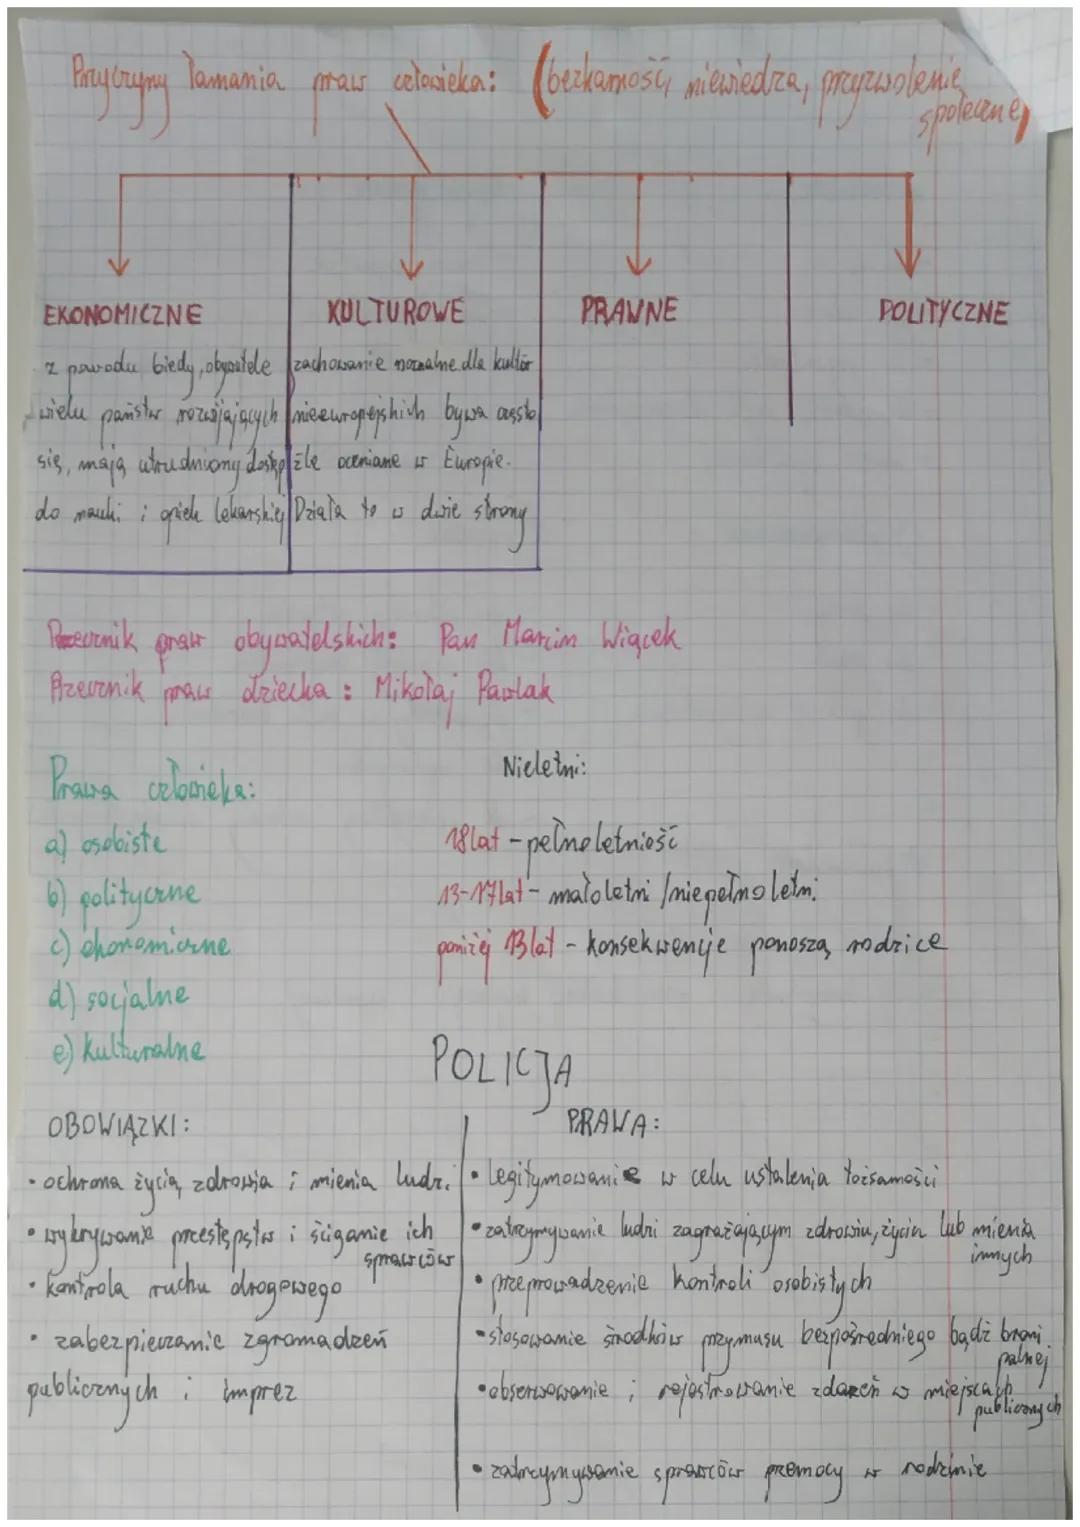 Przyczyny łamania praw człowieka: (bezkarność, niewiedza, przyzwolenie
społeczne)
EKONOMICZNE KULTUROWE PRAWNE POLITYCZNE
z powodu biedy, obywatele
wielu państw rozwijających
się, mają utrudniony dostęp
do nauki i opieki lekarskiej
zachowanie normalne dla kultur
nieeuropejskich bywa często
źle oceniane w Europie.
Działa to w dwie strony
Rzecznik praw obywatelskich: Pan Marcin Wiącek
Rzecznik praw dziecka: Mikołaj Pawlak
Prawa człowieka:
a) osobiste
b) polityczne
c) ekonomiczne
d) socjalne
e) kulturalne
Nieletni:
18 lat - pełnoletniość
13-17 lat - małoletni /niepełnoletni
poniżej 13 lat - konsekwencje ponoszą rodzice
POLICJA
OBOWIĄZKI:
• ochrona życia, zdrowia i mienia ludzi
• wykrywanie przestępstw i ściganie ich
sprawców
• kontrola ruchu drogowego
• zabezpieczanie zgromadzeń
publicznych i imprez
PRAWA:
• legitymowanie w celu ustalenia tożsamości
• zatrzymywanie ludzi zagrażającym zdrowiu, życiu lub mieniu
innych
• przeprowadzenie kontroli osobistych
• stosowanie środków przymusu bezpośredniego bądź broni
palnej
• obserwowanie i rejestrowanie zdarzeń w miejscach
publicznych
• zatrzymywanie sprawców przemocy w rodzinie